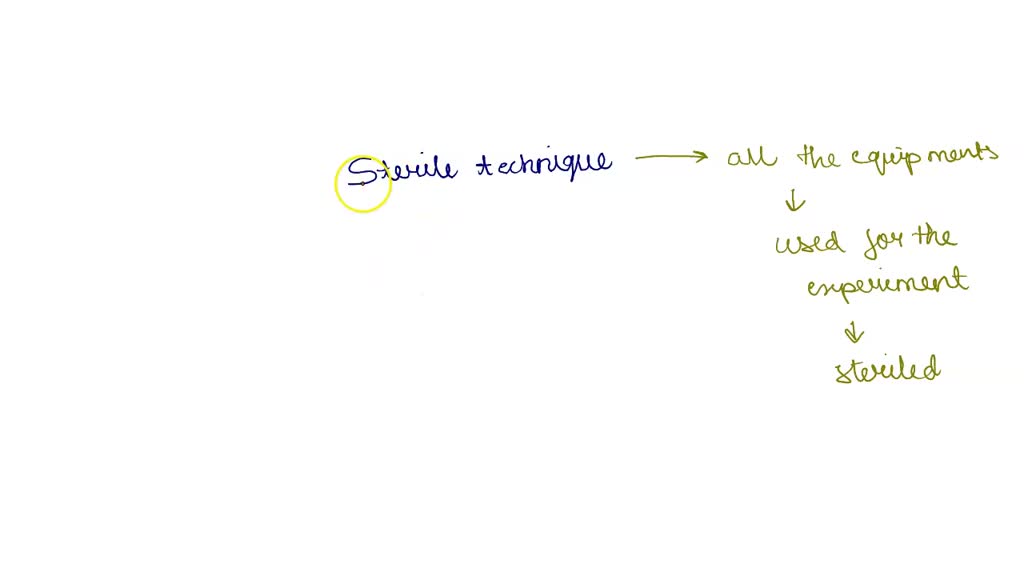 Sterile technique → all the equipments
↓
used for the
experiment
↓
steriled